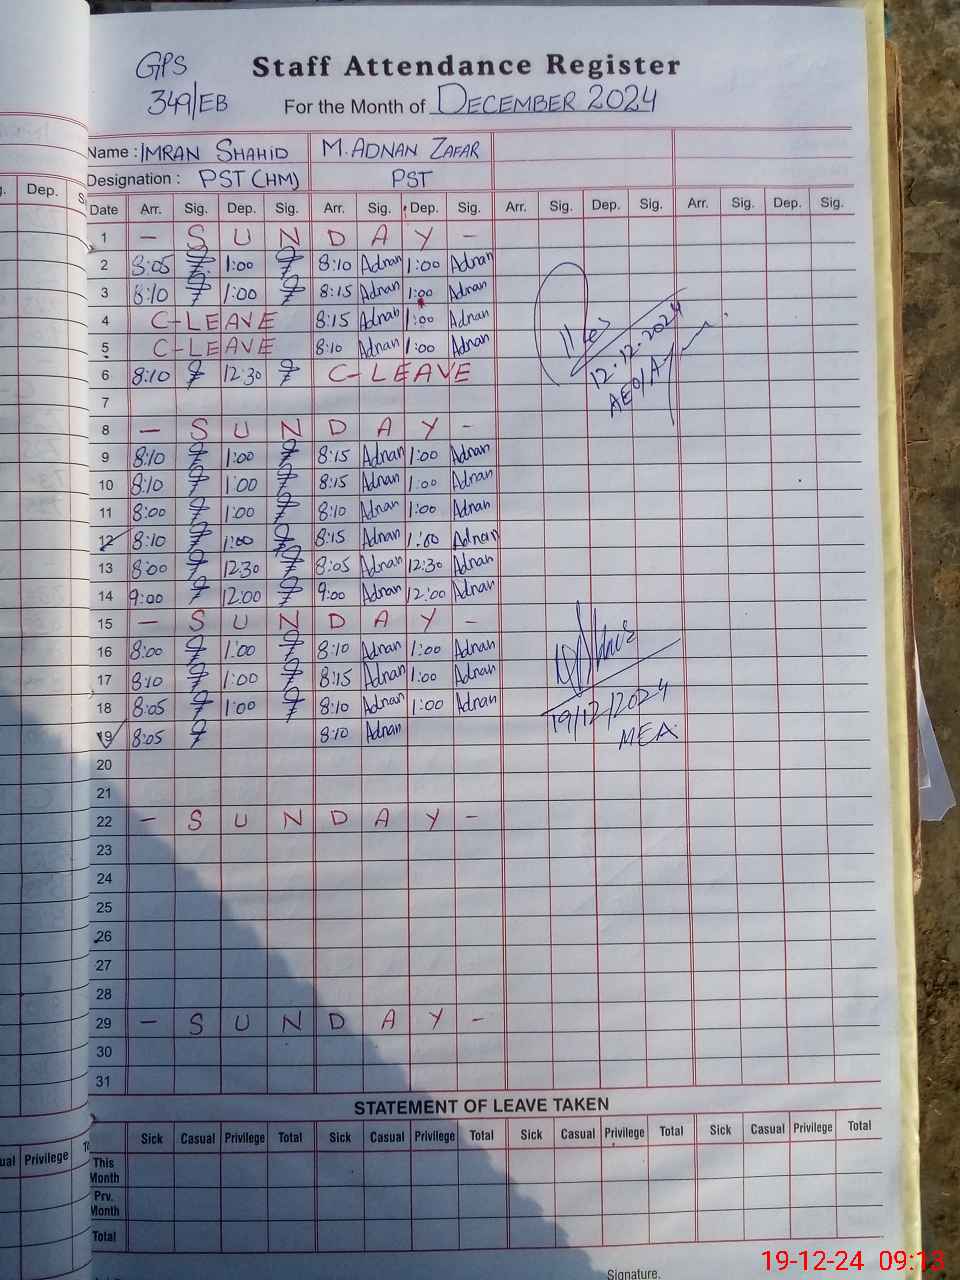 GPS
349/EB
Staff Attendance Register
For the Month of DECEMBER 2024
Name : IMRAN SHAHID M. ADNAN ZAFAR
Designation : PST (HM) PST
Dep.
Date Arr. Sig. Dep. Sig. Arr. Sig. Dep. Sig. Arr. Sig. Dep. Sig. Arr. Sig. Dep. Sig.
1 — S U N D A Y -
2 8:05 1:00 8:10 Adnan 1:00 Adnan
3 8:10 1:00 8:15 Adnan 1:00 Adnan
4 C-LEAVE 8:15 Adnan 1:00 Adnan
5 C-LEAVE 8:10 Adnan 1:00 Adnan
6 8:10 12:30 C-LEAVE
7
8 — S U N D A Y -
9 8:10 1:00 8:15 Adnan 1:00 Adnan
10 8:10 1:00 8:15 Adnan 1:00 Adnan
11 8:00 1:00 8:10 Adnan 1:00 Adnan
12 8:10 1:00 8:15 Adnan 1:00 Adnan
13 8:00 12:30 8:05 Adnan 12:30 Adnan
14 9:00 12:00 9:00 Adnan 12:00 Adnan
15 — S U N D A Y -
16 8:00 1:00 8:10 Adnan 1:00 Adnan
17 8:10 1:00 8:15 Adnan 1:00 Adnan
18 8:05 1:00 8:10 Adnan 1:00 Adnan
19 8:05 8:10 Adnan
20
21
22 — S U N D A Y -
23
24
25
26
27
28
29 — S U N D A Y -
30
31
12.12.2024
AEO/A
19/12/2024
MEA
STATEMENT OF LEAVE TAKEN
Sick Casual Privilege Total Sick Casual Privilege Total Sick Casual Privilege Total Sick Casual Privilege Total
Privilege
This Month
Prv. Month
Total
Signature.
19-12-24 09:13